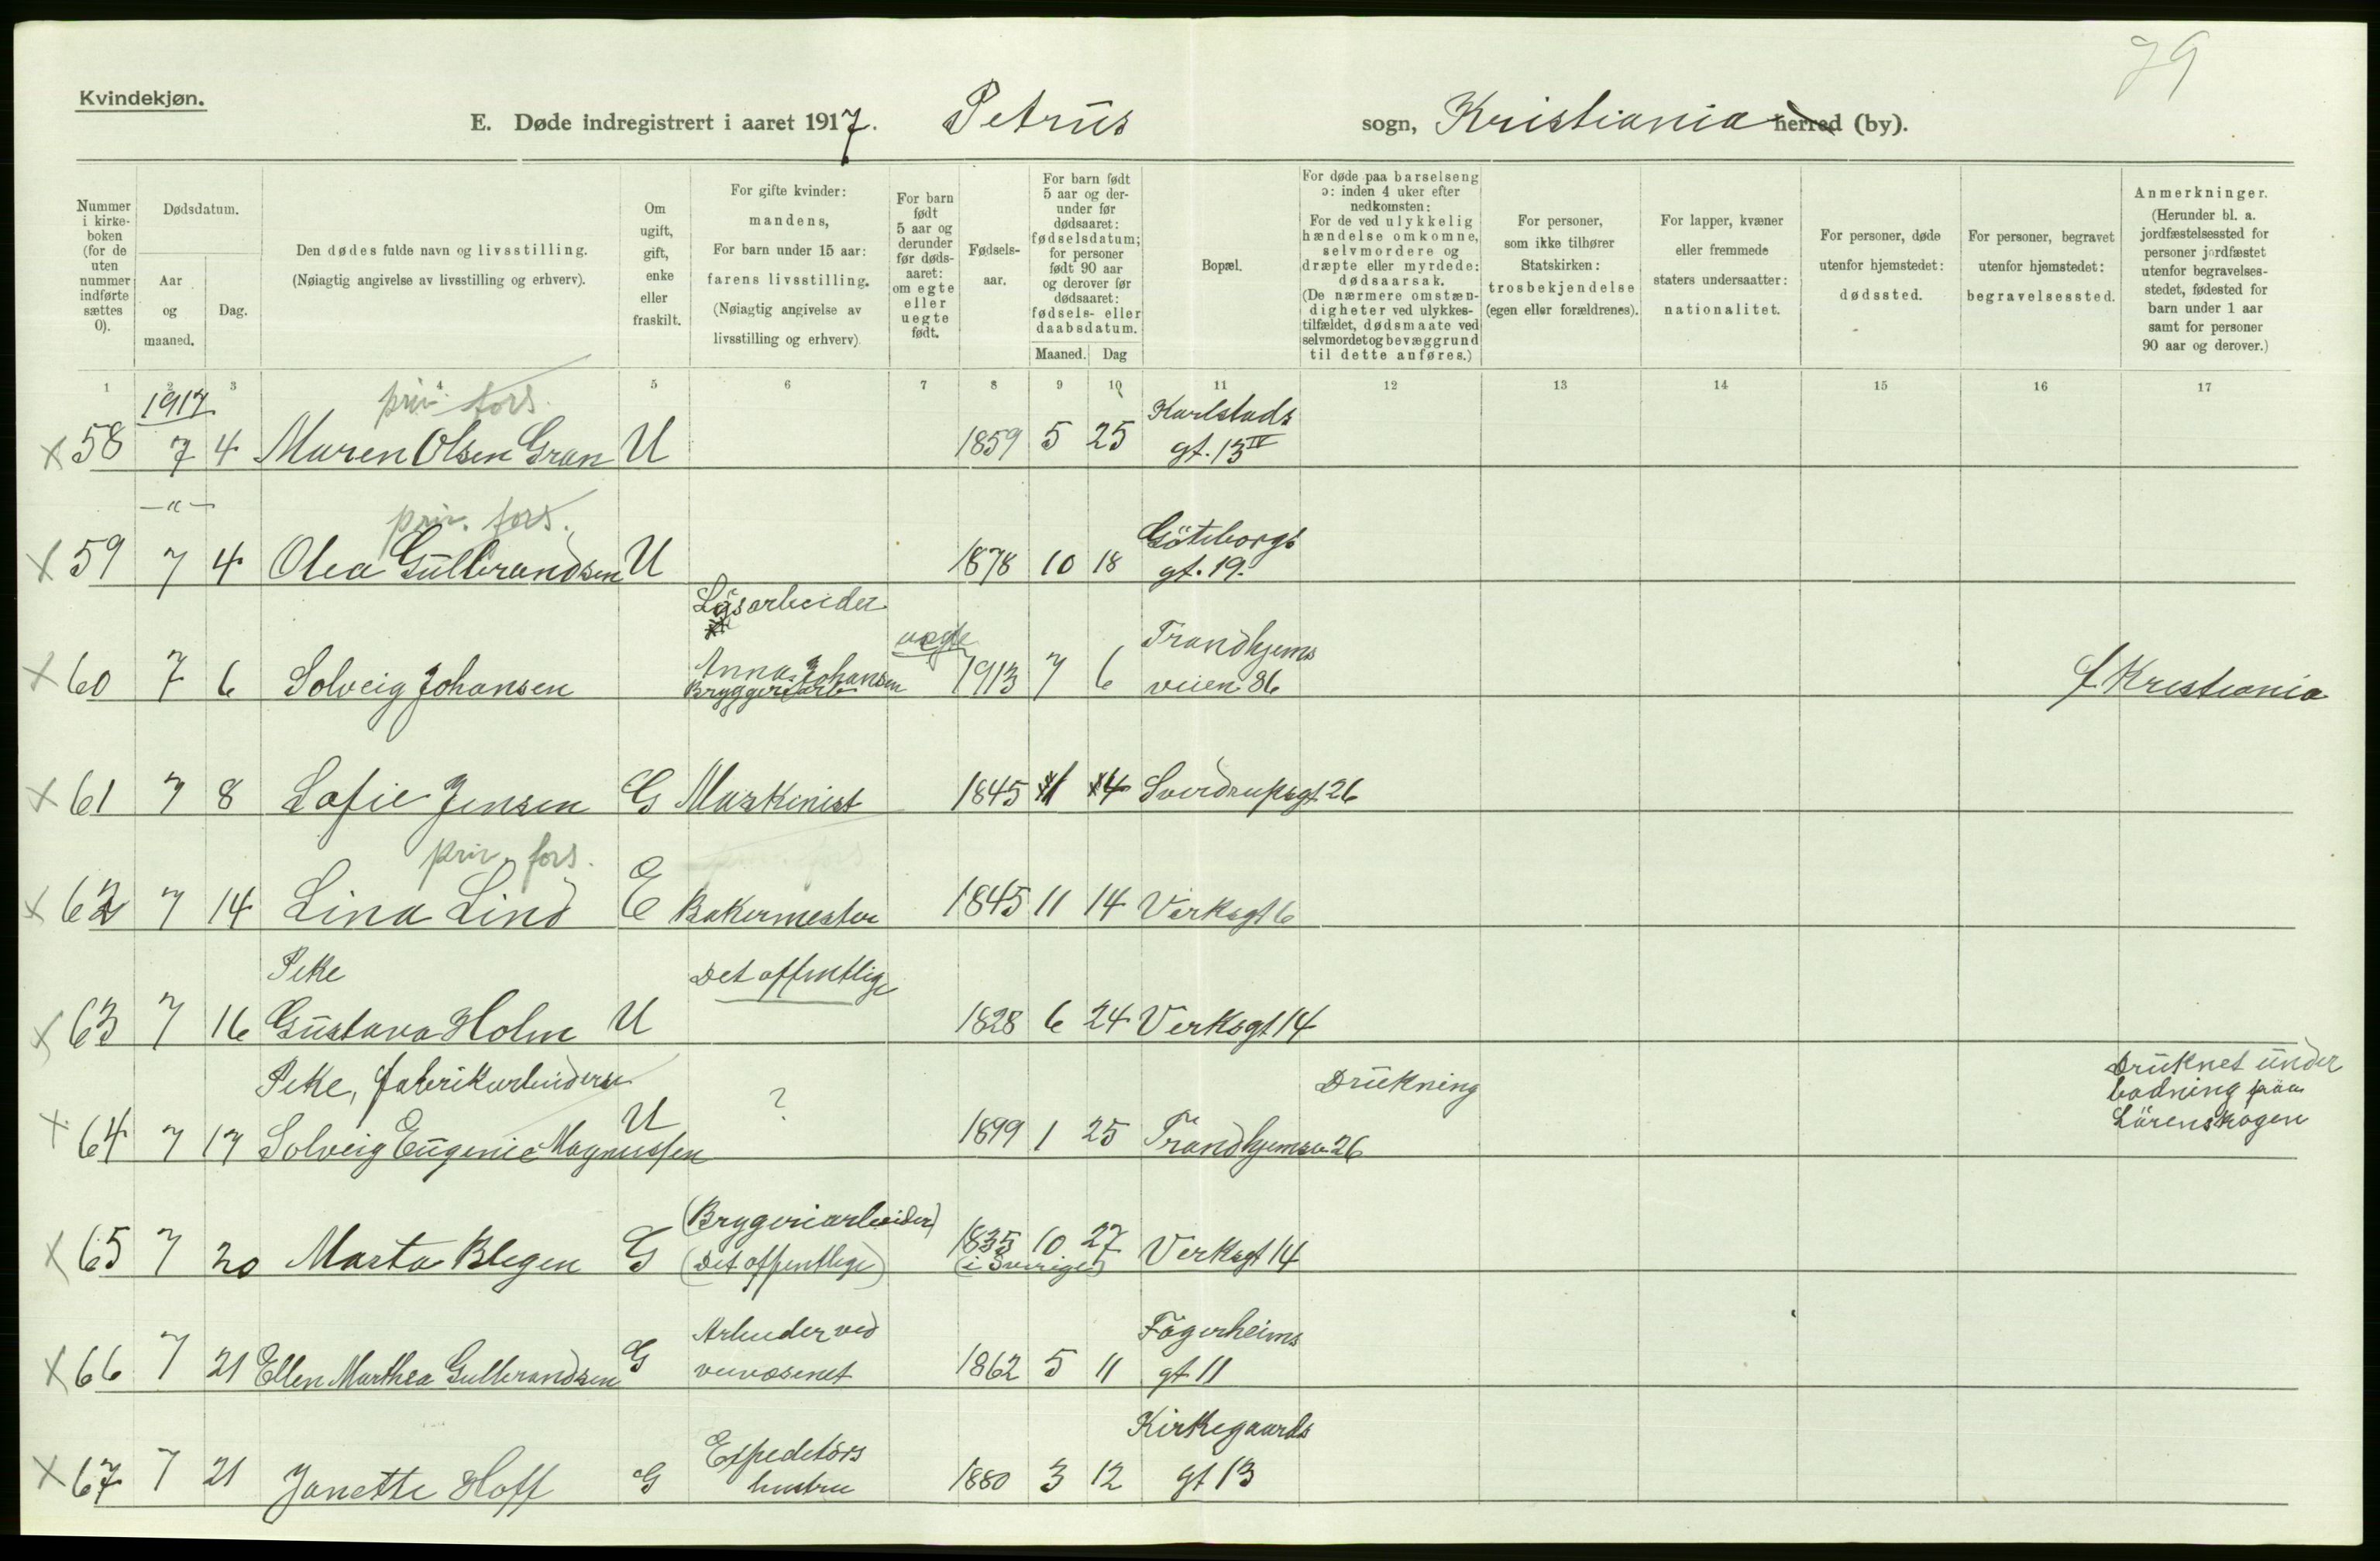 79
Kvindekjøn.
E. Døde indregistrert i aaret 1917. Petrus sogn, Kristiania herred (by).
Nummer i kirke-boken (for de uten nummer indførte sættes 0).
Dødsdatum.
Aar og maaned.
Dag.
Den dødes fulde navn og livsstilling.
(Nøiagtig angivelse av livsstilling og erhverv).
Om ugift, gift, enke eller fraskilt.
For gifte kvinder: mandens,
For barn under 15 aar: farens livsstilling.
(Nøiagtig angivelse av livsstilling og erhverv).
For barn født 5 aar og derunder før døds-aaret: om egte eller uegte født.
Fødsels-aar.
For barn født 5 aar og der-under før dødsaaret: fødselsdatum; for personer født 90 aar og derover før dødsaaret: fødsels- eller daabsdatum.
Maaned. Dag
Bopæl.
For døde paa barselseng ɔ: inden 4 uker efter nedkomsten:
For de ved ulykkelig hændelse omkomne, selvmordere og dræpte eller myrdede: dødsaarsak.
(De nærmere omstæn-digheter ved ulykkes-tilfældet, dødsmaate ved selvmordet og bevæggrund til dette anføres.)
For personer, som ikke tilhører Statskirken: trosbekjendelse (egen eller forældrenes).
For lapper, kvæner eller fremmede staters undersaatter: nationalitet.
For personer, døde utenfor hjemstedet: dødssted.
For personer, begravet utenfor hjemstedet: begravelsessted.
Anmerkninger.
(Herunder bl. a. jordfæstelsessted for personer jordfæstet utenfor begravelses-stedet, fødested for barn under 1 aar samt for personer 90 aar og derover.)
1 2 3 4 5 6 7 8 9 10 11 12 13 14 15 16 17
1917 priv. fors. Karlstads
x 58 7 4 Maren Olsen Gran U 1859 5 25 gt. 13 IV
—"— priv. fors. Göteborgs
x 59 7 4 Olea Gulbrandsen U 1878 10 18 gt. 19.
Løsarbeider uegte Trondhjems
x 60 7 6 Solveig Johansen Anna Johansen 1913 7 6 veien 86 f. Kristiania
Bryggeriarb
x 61 7 8 Sofie Jensen G Maskinist 1845 1 4 Sverdrupsgt 26
priv. fors.
x 62 7 14 Lina Lind E Bakermester 1845 11 14 Verksgt 6
Pike Det offentlige
x 63 7 16 Gustava Holm U 1828 6 24 Verksgt 14
Pike, fabrikarbeiderse ? Drukning Druknet under
badning paa
x 64 7 17 Solveig Eugenie Magnussen U 1899 1 25 Trondhjemsv 26 Lørenskogen
(Bryggeriarbeider)
x 65 7 20 Marta Blegen G (Det offentlige) 1835 10 27 Verksgt 14
(i Sverige)
Arbeider ved Fagerheims
x 66 7 21 Ellen Marthea Gulbrandsen G veivæsenet 1862 5 11 gt 11
Expeditørs Kirkegaards
x 67 7 21 Janette Hoff G hustru 1880 3 12 gt 13